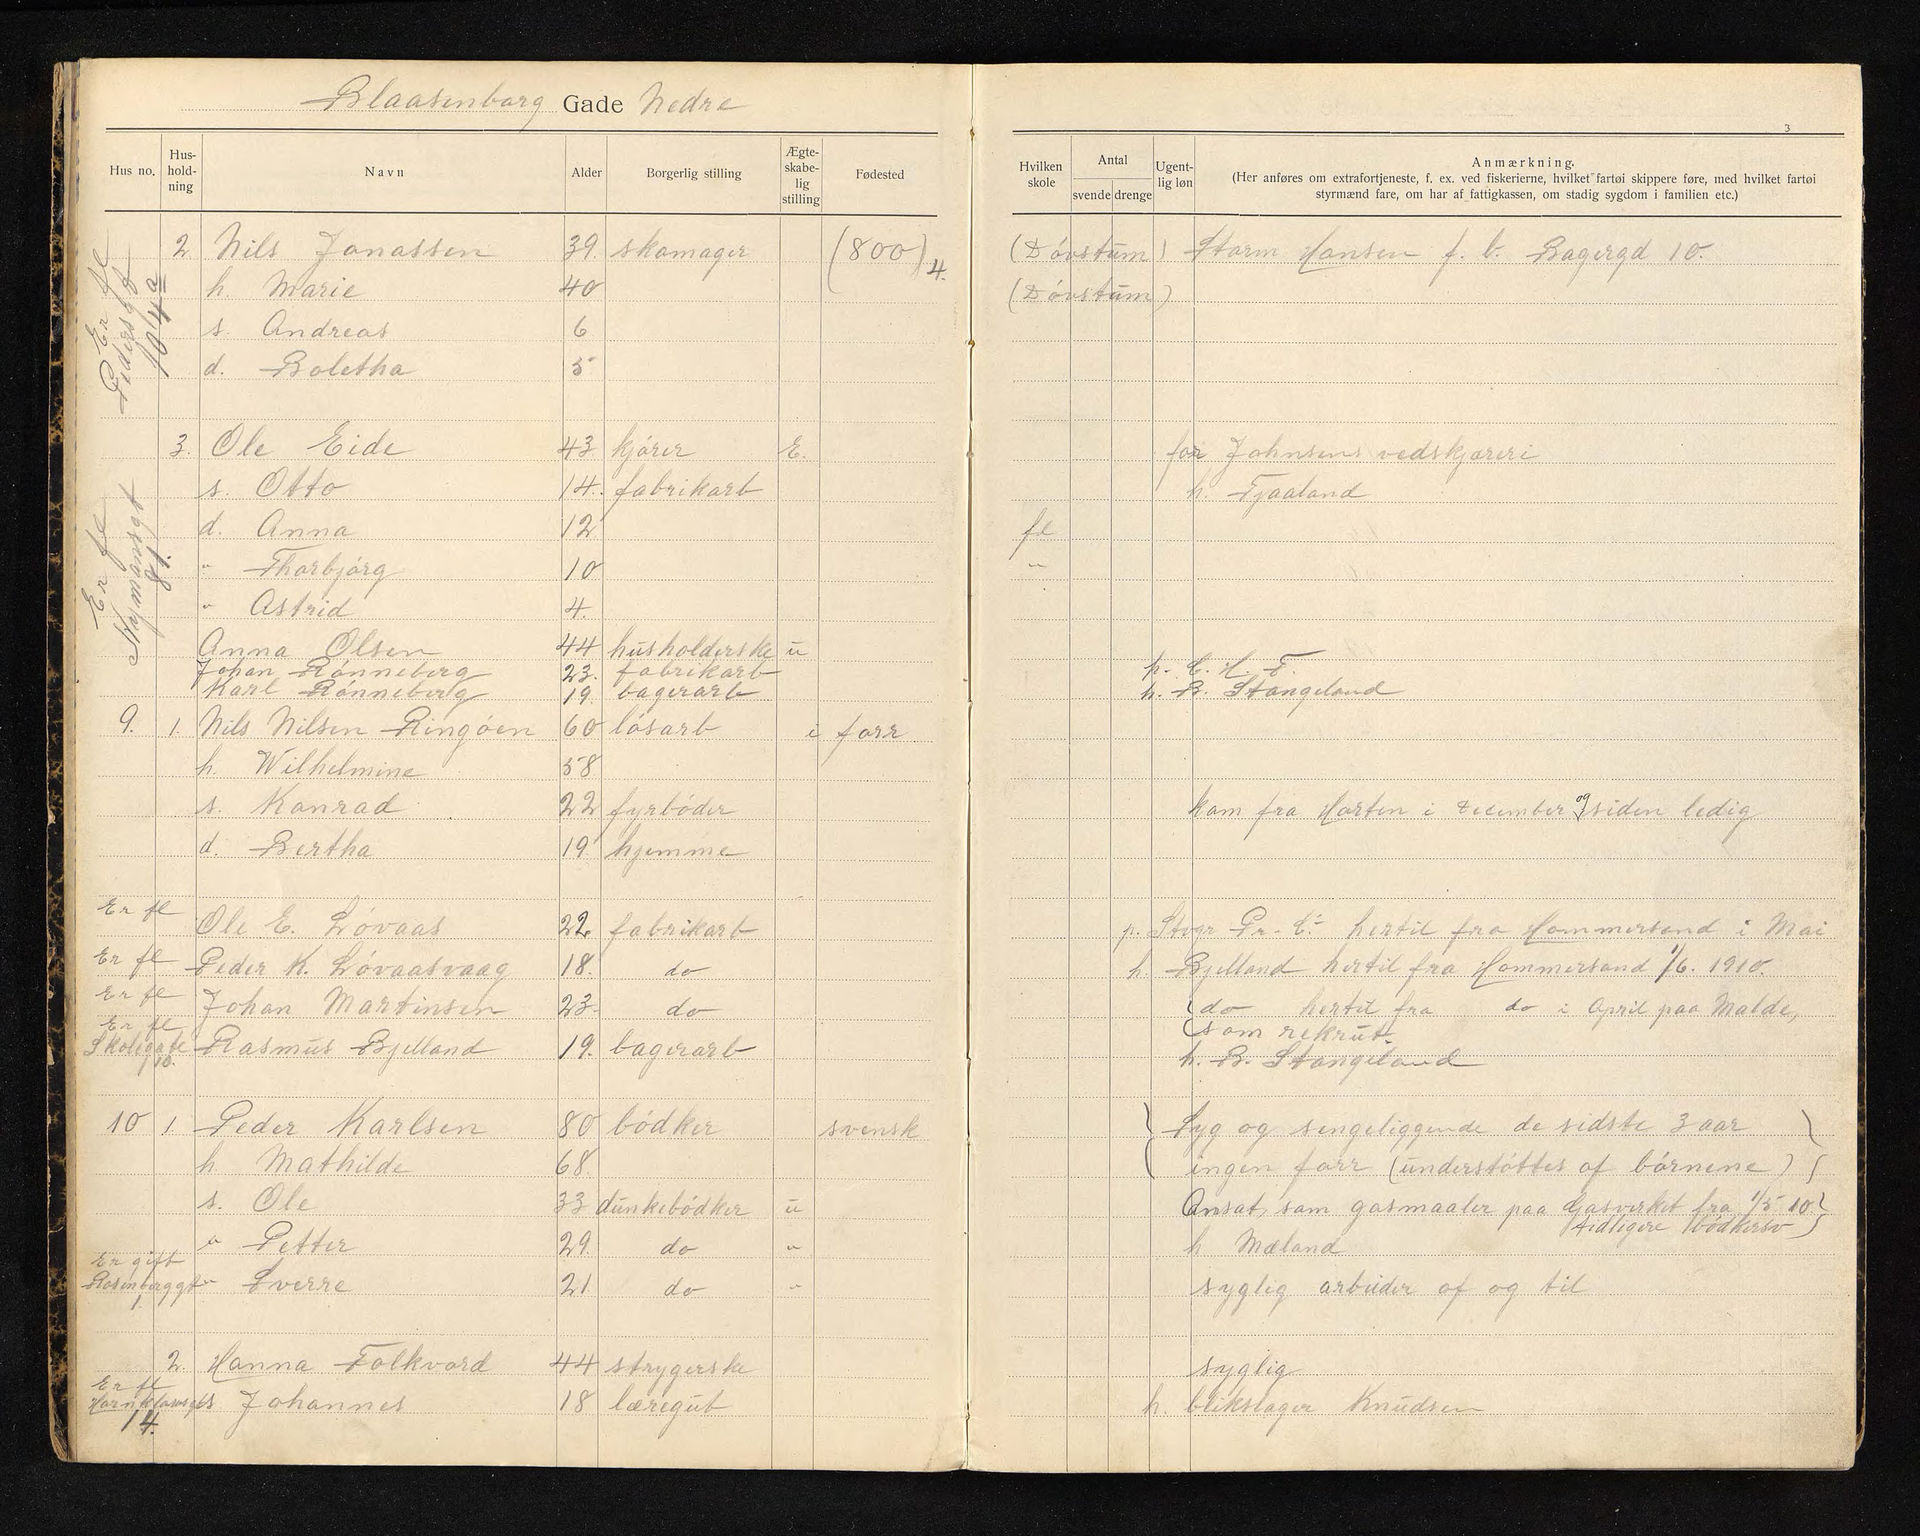 Blaasenborg Gade Nedre
Hus no. Hus-holdning Navn Alder Borgerlig stilling Ægte-skabe-lig stilling Fødested
Er fl Pedersgt 104a
2 Nils Jonassen 39. skomager (800) 4.
h. Marie 40
s. Andreas 6
d. Boletha 5
Er fl Nymansgt 81.
3. Ole Eide 43 kjører E.
s. Otto 14. fabrikarb
d. Anna 12
" Thorbjørg 10
" Astrid 4.
Anna Olsen 44 husholderske u
Johan Rønneberg 23. fabrikarb
Karl Rønneberg 19. bagerarb
9. 1. Nils Nilsen Ringøen 60 løsarb i forr
h. Wilhelmine 58
s. Konrad 22 fyrbøder
d. Bertha 19 hjemme
Er fl Ole E. Løvaas 22. fabrikarb
Er fl Peder K. Løvaasvaag 18. do
Er fl Johan Martinsen 23. do
Er fl
Skolegate 10. Rasmus Bjelland 19. bagerarb
10 1. Peder Karlsen 80 bødker svensk
h Mathilde 68
s. Ole 33 dunkebødker u
" Petter 29. do "
Er gift
Rosenberggt 1. " Sverre 21. do "
2. Hanna Folkvord 44 strygerske
Er fl
Hornklovesgt 14. s Johannes 18 læregut
3
Hvilken skole Antal svende drenge Ugent-lig løn Anmærkning.
(Her anføres om extrafortjeneste, f. ex. ved fiskerierne, hvilket fartøi skippere føre, med hvilket fartøi
styrmænd fare, om har af fattigkassen, om stadig sygdom i familien etc.)
(Døvstum) Storm Hansen f. b. Bagergd 10.
(Døvstum)
for Johnsens vedskjæreri
h. Tjaaland
fl
"
p. C. H. F.
h. B. Stangeland
kom fra Horten i December og siden ledig
p. Stvgr Pr. C. hertil fra Hommersand i Mai
h. Bjelland hertil fra Hommersand 1/6. 1910.
do hertil fra do i April paa Malde,
som rekrut.
h. B. Stangeland
Syg og sengeliggende de sidste 3 aar
ingen forr (understøttes af børnene)
Ansat, som gasmaaler paa Gasverket fra 1/5 10.
tidligere bødkersv
h Mæland
syglig arbeider af og til
syglig
h. blikslager Knudsen